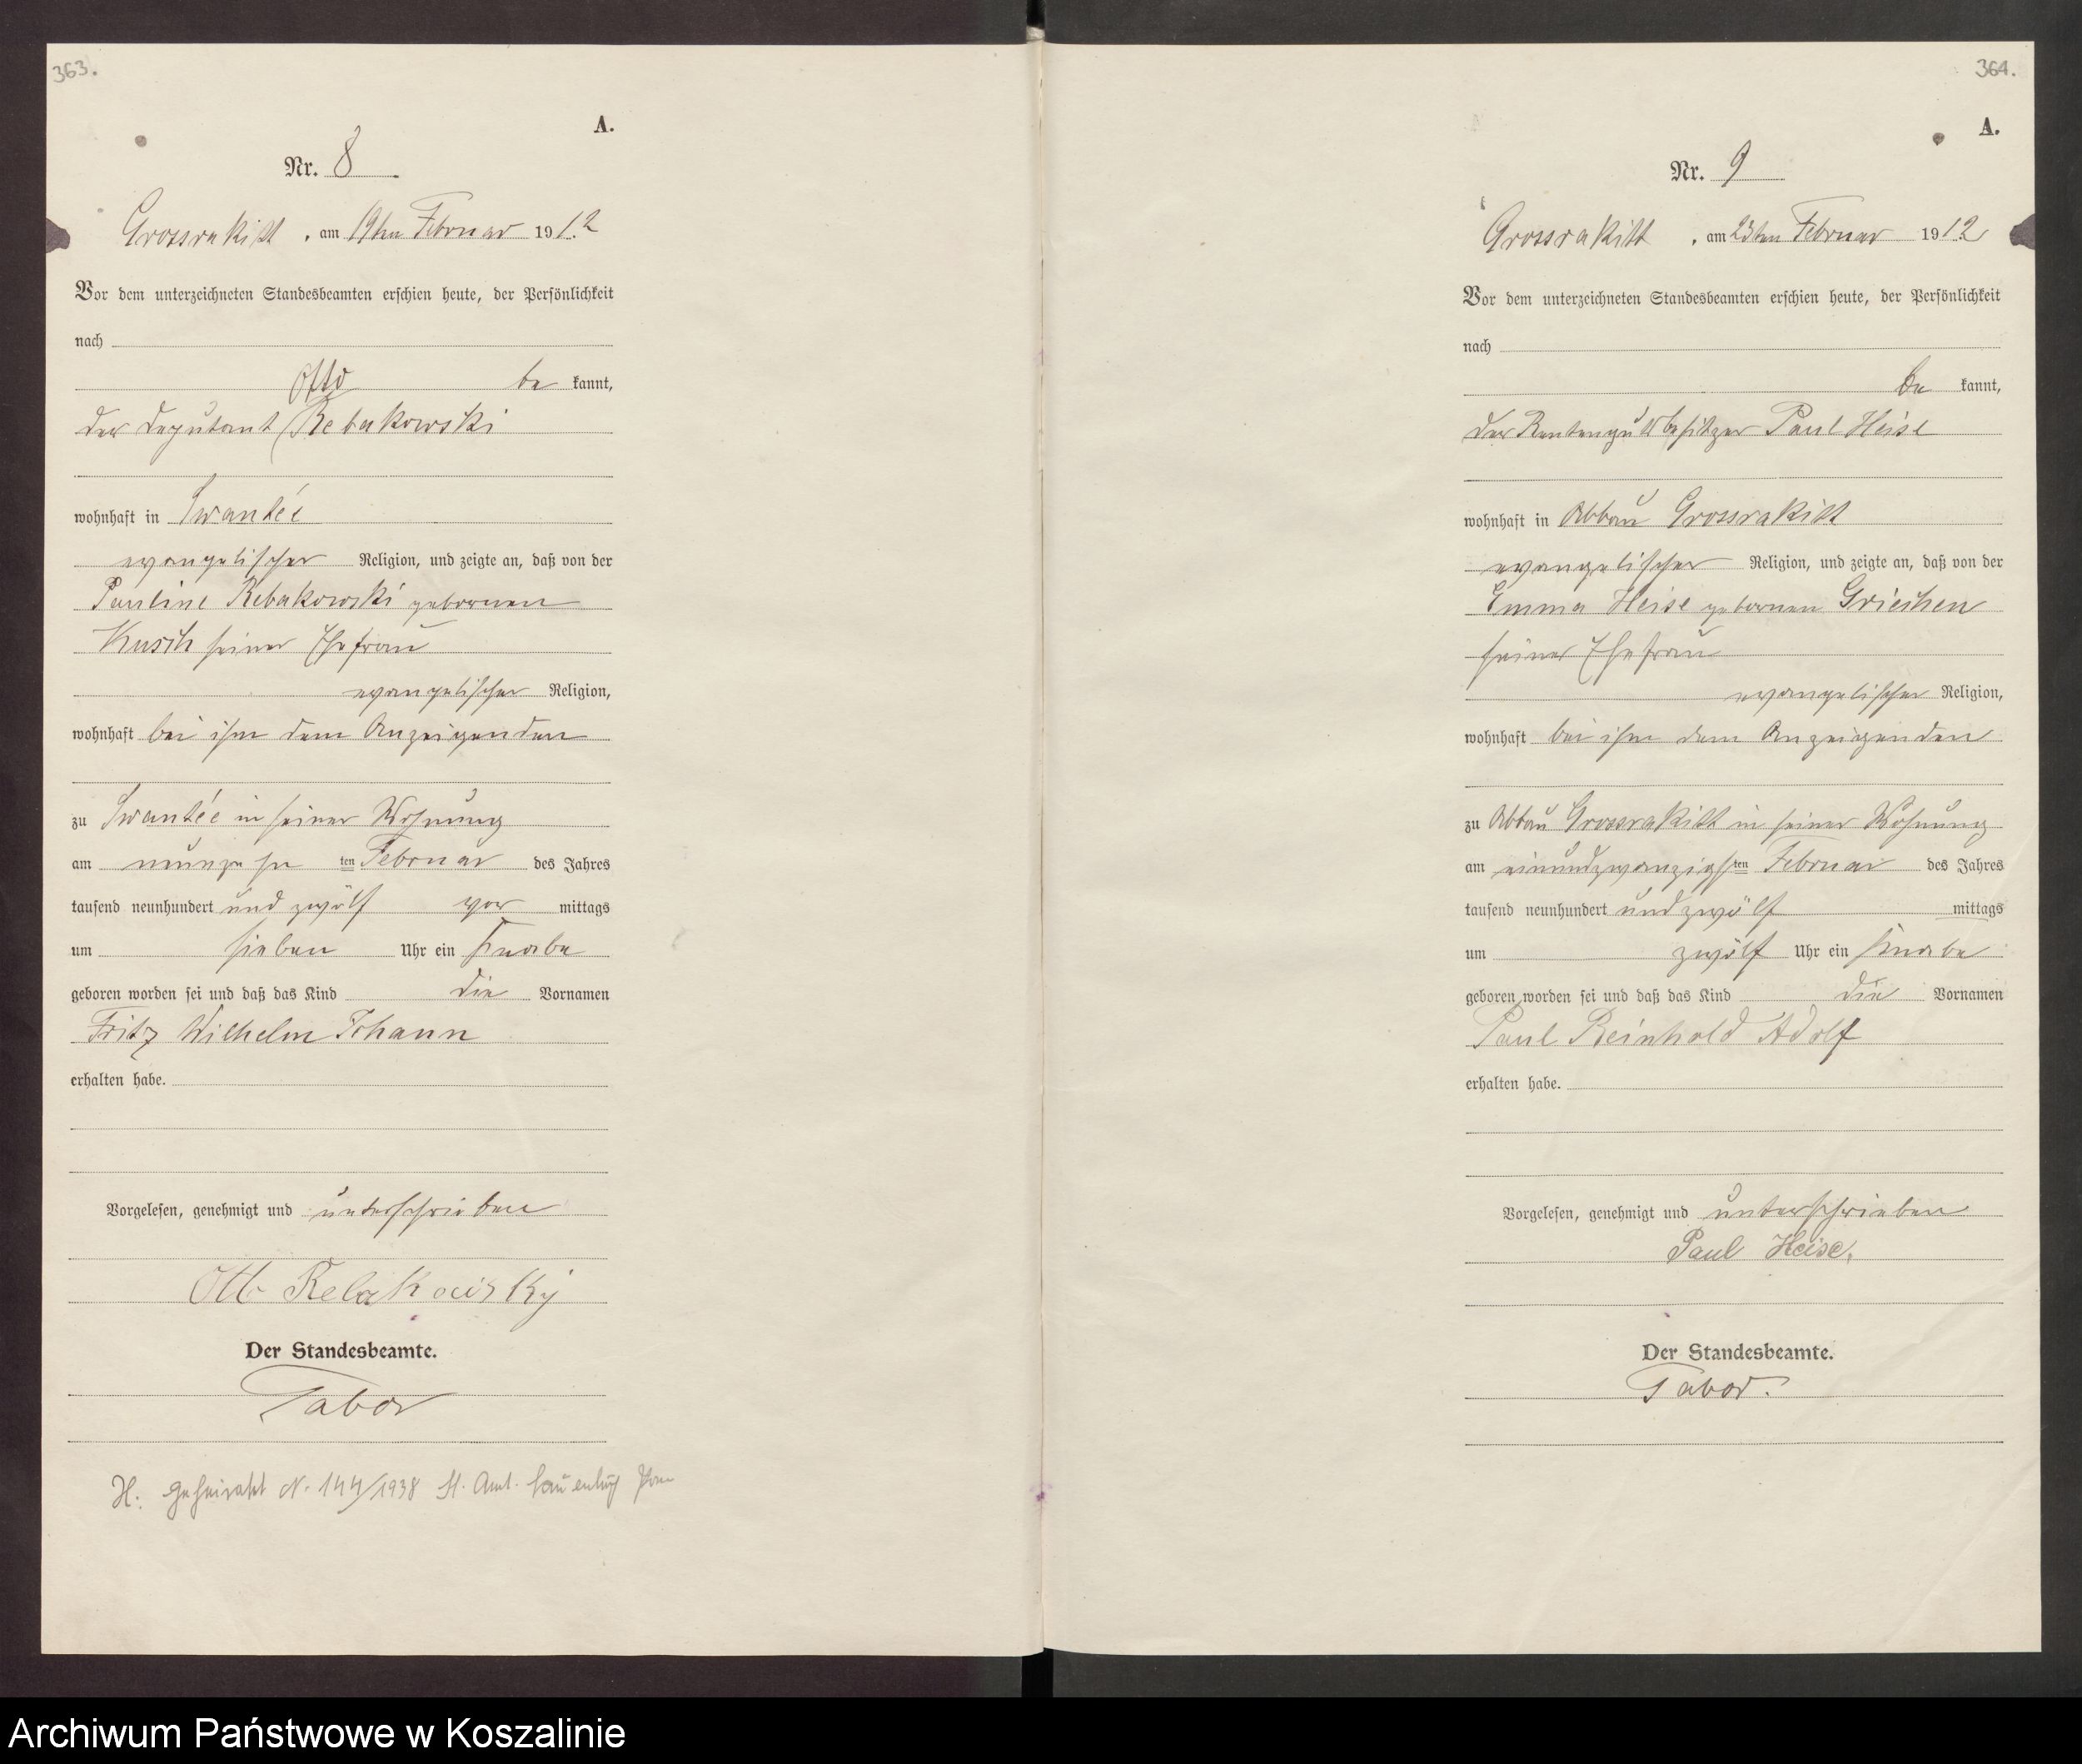 363.
A.
Nr. 8
Grossrakitt, am 19ten Februar 1912
Vor dem unterzeichneten Standesbeamten erschien heute, der Persönlichkeit
nach
Otto be kannt,
der Deputant Rebakowski
wohnhaft in Swantee
evangelischer Religion, und zeigte an, daß von der
Pauline Rebakowski geborenen
Kusch seiner Ehefrau
evangelischer Religion,
wohnhaft bei ihm dem Anzeigenden
zu Swantee in seiner Wohnung
am neunzehn ten Februar des Jahres
tausend neunhundert und zwölf vor mittags
um sieben Uhr ein Knabe
geboren worden sei und daß das Kind die Vornamen
Fritz Wilhelm Johann
erhalten habe.
Vorgelesen, genehmigt und unterschrieben
Otto Rebakowsky
Der Standesbeamte.
Tabor
H: geheiratet N. 144/1938 St. Amt. Lauenburg Pom
364.
A.
Nr. 9
Grossrakitt, am 23ten Februar 1912
Vor dem unterzeichneten Standesbeamten erschien heute, der Persönlichkeit
nach
be kannt,
der Rentengutsbesitzer Paul Heise
wohnhaft in Abbau Grossrakitt
evangelischer Religion, und zeigte an, daß von der
Emma Heise gebornen Griechen
seiner Ehefrau
evangelischer Religion,
wohnhaft bei ihm dem Anzeigenden
zu Abbau Grossrakitt in seiner Wohnung
am einundzwanzigsten Februar des Jahres
tausend neunhundert und zwölf mittags
um zwölf Uhr ein Knabe
geboren worden sei und daß das Kind die Vornamen
Paul Reinhold Adolf
erhalten habe.
Vorgelesen, genehmigt und unterschrieben
Paul Heise.
Der Standesbeamte.
Tabor.
Archiwum Państwowe w Koszalinie